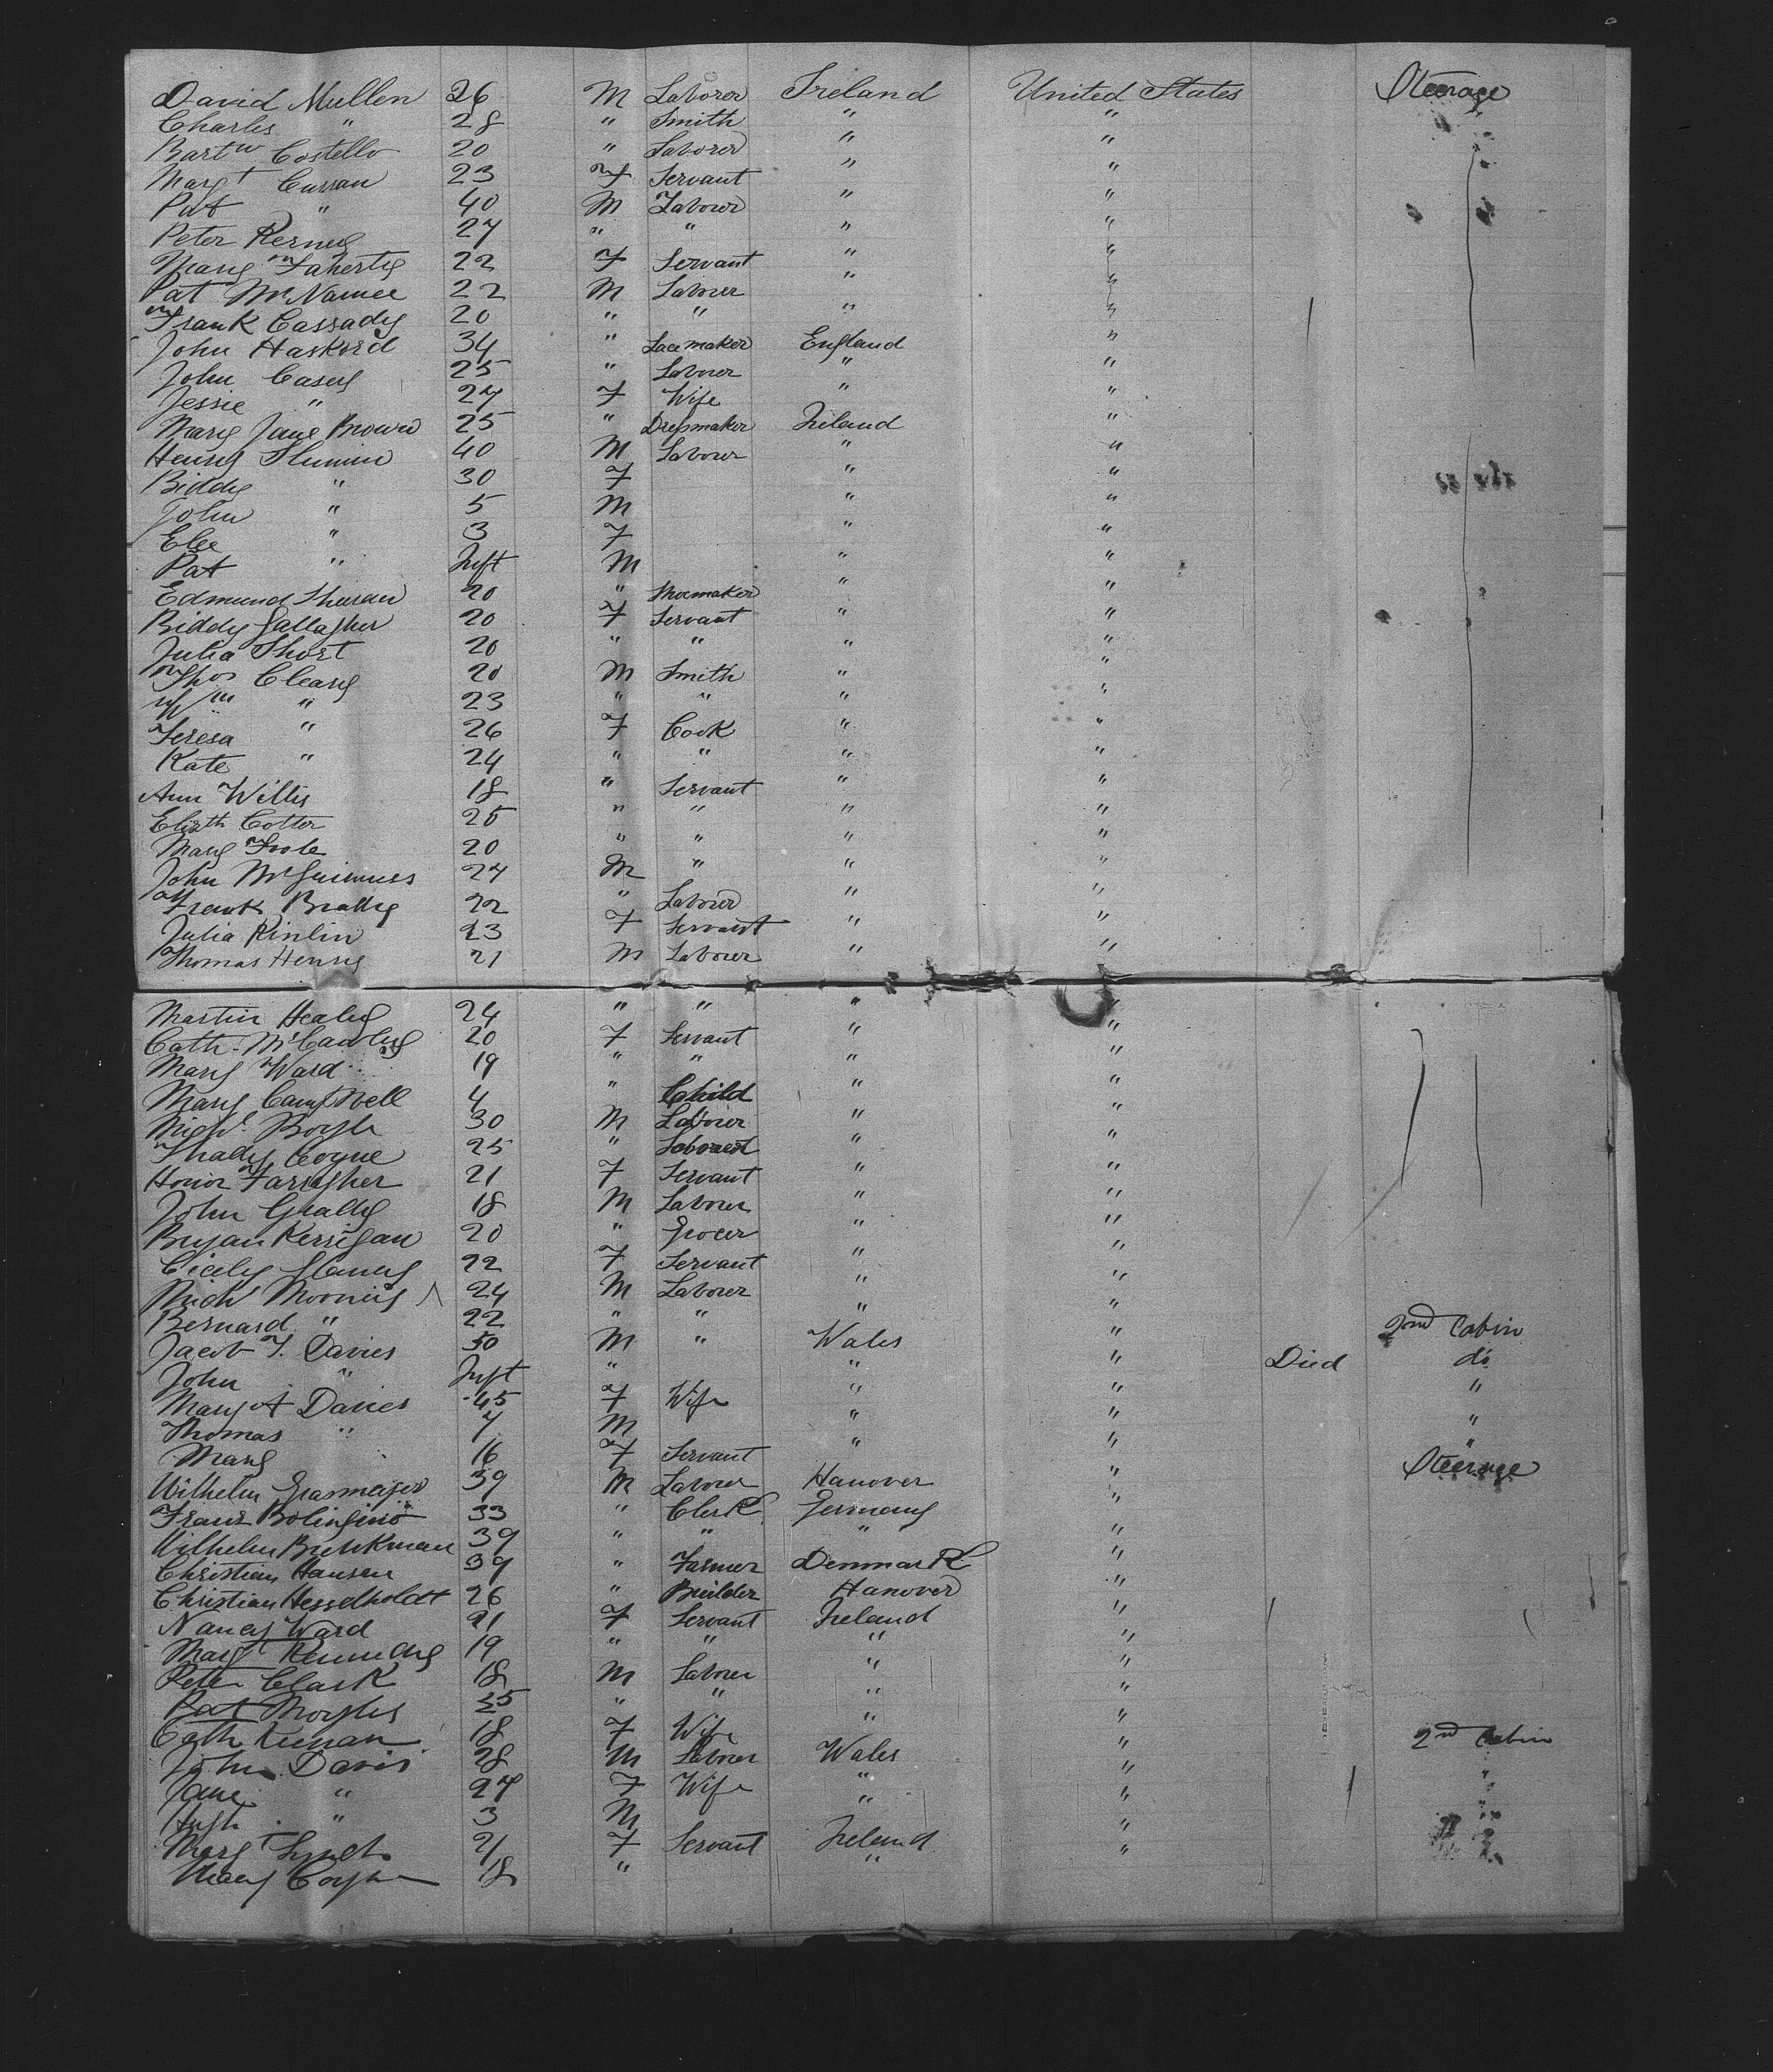 David Mullen 26 M Laborer Ireland United States Steerage
Charles " 28 " Smith " "
Bartw Costello 20 " Laborer " "
Margt Curran 23 F Servant " "
Pat " 40 M Labourer " "
Peter Kerney 27 " " " "
Mary Faherty 22 F Servant " "
Pat McNamee 22 M Laborer " "
Frank Cassady 20 " " " "
John Haskord 34 " Lacemaker England "
John Casey 25 " Laborer " "
Jessie " 27 F Wife " "
Mary Jane Brown 25 " Dressmaker Ireland "
Henry 40 M Laborer " "
Biddy " 30 F " "
John " 5 M " "
" 3 F " "
Pat " Inft M " "
Edmund 20 " Shoemaker " "
Biddy Gallagher 20 F Servant " "
Julia Short 20 " " " "
Thos Cleary 20 M Smith " "
Wm " 23 " " " "
Teresa " 26 F Cook " "
Kate " 24 " " " "
Ann Willis 18 " Servant " "
Elizth Cotter 25 " " " "
Mary Toole 20 " " " "
John McGuinness 24 M " " "
Frank 22 " Laborer " "
Julia Kinlin 23 F Servant " "
Thomas Henry 21 M Laborer " "
Martin Healy 24 " " " "
Cath. McCawley 20 F Servant " "
Mary Ward 19 " " " "
Mary Campbell 4 " Child " "
Michl Boyle 30 M Laborer " "
Thady Coyne 25 " Laborer " "
Honor Faragher 21 F Servant " "
John Grally 18 M Laborer " "
Bryan Kerrigan 20 " Grocer " "
Cicely 22 F Servant " "
Michl 24 M Laborer " "
Bernard " 22 " " " "
Jacob T. Davies 50 M " Wales " 2nd Cabin
John " Inft " " " Died do
Mary A Davies 45 F Wife " " "
Thomas " 7 M " " "
Mary 16 F Servant " " "
Wilhelm Grasmeyer 39 M Laborer Hanover " Steerage
Franz 33 " Clerk Germany "
Wilhelm 39 " " " "
Christian Hansen 39 " Farmer Denmark "
Christian Hesselholdt 26 " Builder Hanover "
Nancy Ward 21 F Servant Ireland "
Margt Kennedy 19 " " " "
Peter Clark 18 M Laborer " "
Pat Moyles 25 " " " "
Cath Keenan 18 F Wife " "
John Davis 28 M Laborer Wales " 2nd Cabin
Jane " 27 F Wife " " "
Hugh " 3 M " "
Margt Lynch 21 F Servant Ireland "
Mary Coyne 18 " "